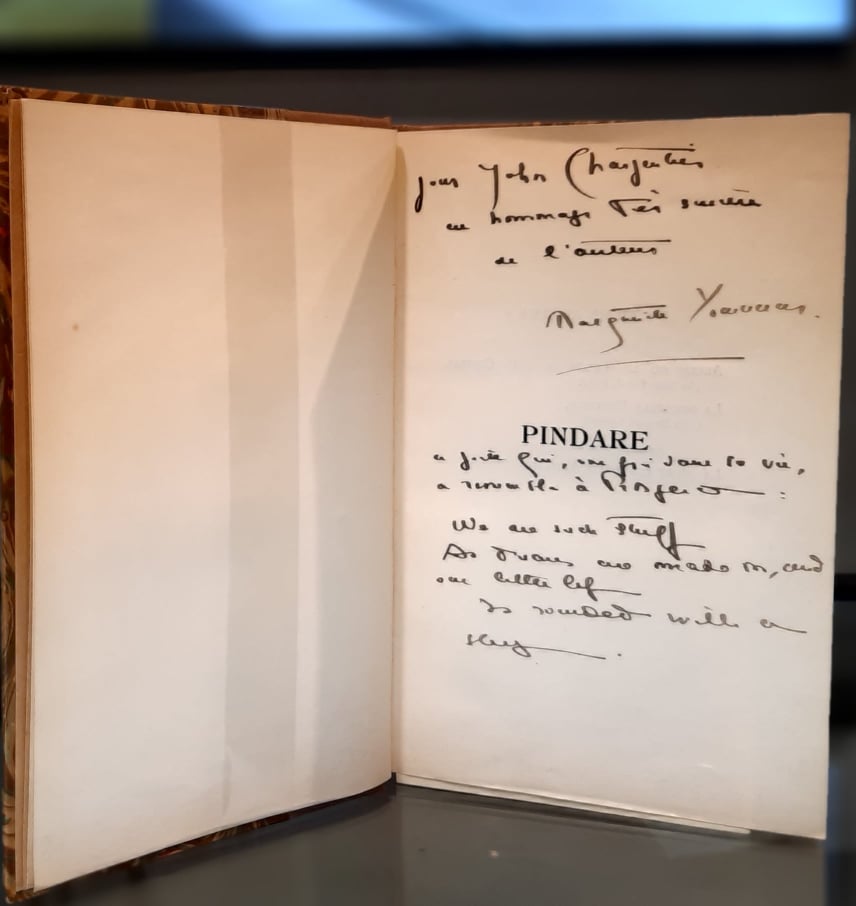 pour John Charpentier
en hommage très sincère
de l'auteur
Marguerite Yourcenar.
PINDARE
poète qui, une fois dans sa vie,
a ressemblé à Prospero :
We are such stuff
As dreams are made on, and
our little life
Is rounded with a
sleep.